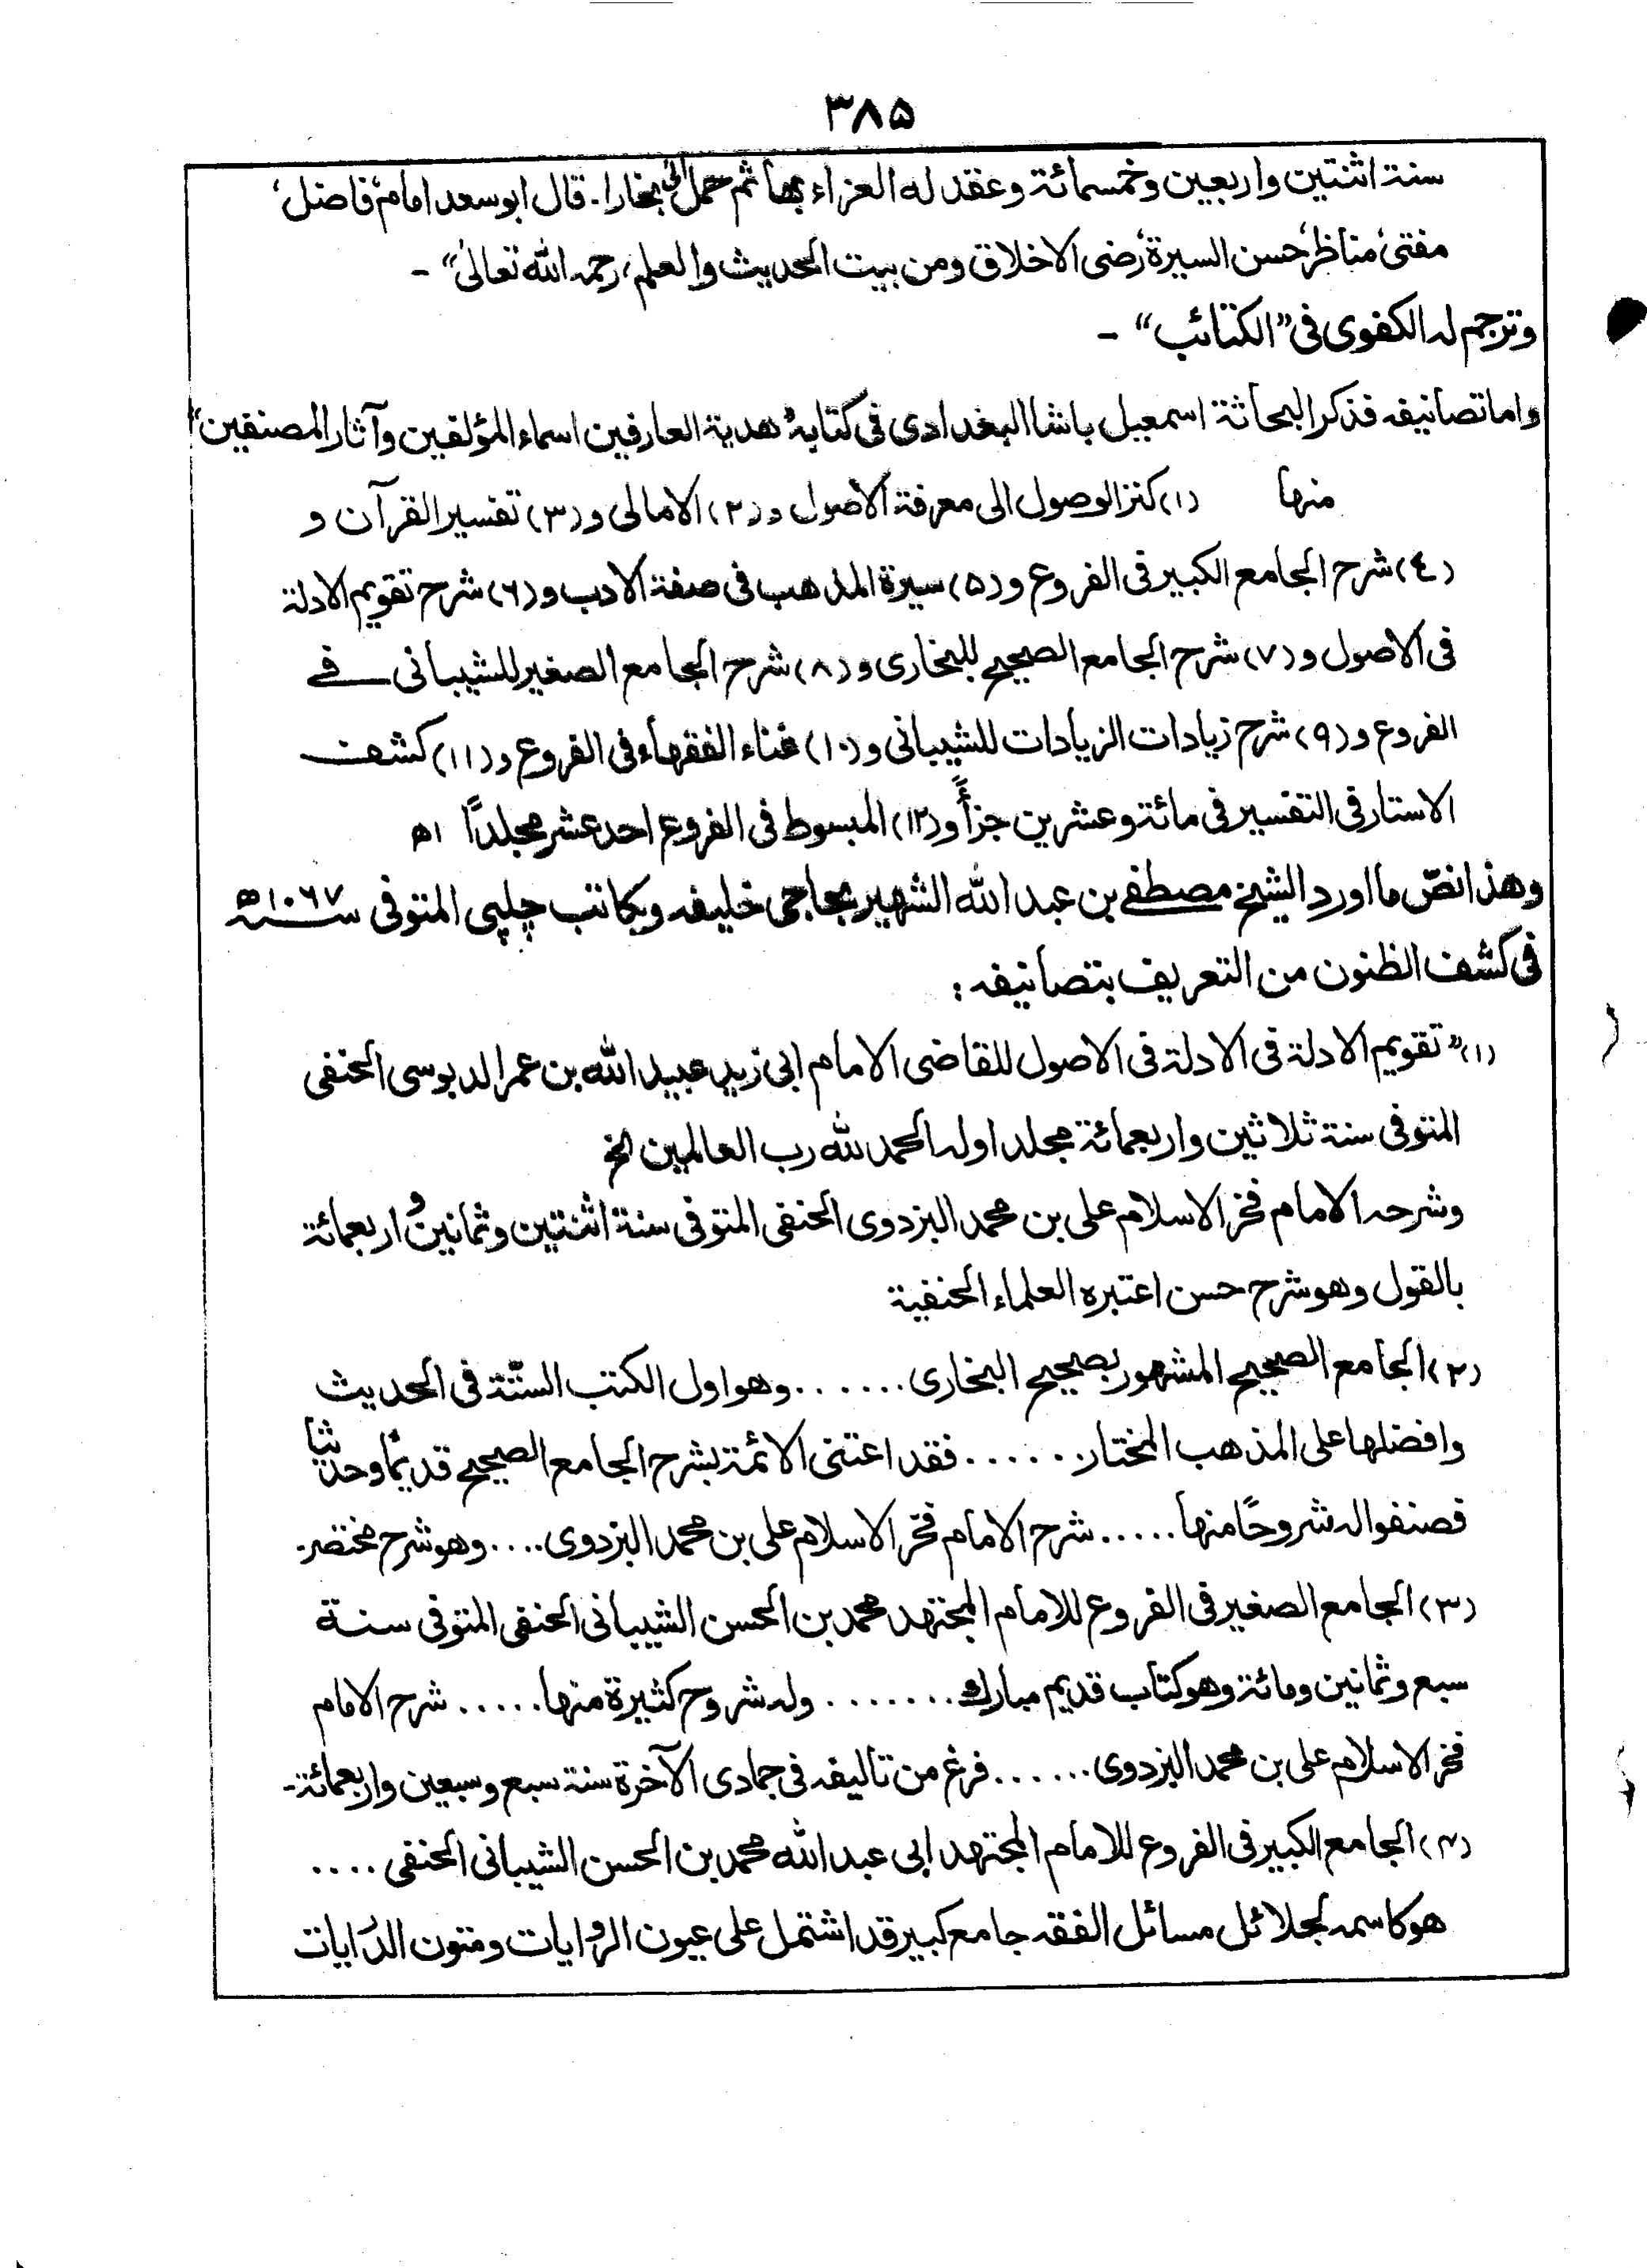 ٣٨٥
سنة اثنتين واربعين وخمسمائة وعقد له العزاء بها ثم حمل الى بخارا. قال ابو سعد امام، فاضل،
مفتى، مناظر، حسن السيرة، رضى الاخلاق ومن بيت الحديث والعلم، رحمه الله تعالىٰ" -
وترجم له الكفوى فى "الكتائب" -
واما تصانيفه فذكر البحاثة اسمعيل باشا البغدادى فى كتابه "هدية العارفين اسماء المؤلفين وآثار المصنفين"
منها (١) كنز الوصول الى معرفة الاصول و(٢) الامالى و(٣) تفسير القرآن و
(٤) شرح الجامع الكبير فى الفروع و(٥) سيرة المذهب فى صفة الادب و(٦) شرح تقويم الادلة
فى الاصول و(٧) شرح الجامع الصحيح للبخارى و(٨) شرح الجامع الصغير للشيبانى فے
الفروع و(٩) شرح زيادات الزيادات للشيبانى و(١٠) غناء الفقهاء فى الفروع و(١١) كشف
الاستار فى التفسير فى مائة وعشرين جزأً و(١٢) المبسوط فى الفروع احد عشر مجلداً اھ
وهذا نصّ ما اورد الشيخ مصطفے بن عبد الله الشهير بحاجى خليفه وبكاتب چلپى المتوفى سنة ١٠٦٧ھ
فى كشف الظنون من التعريف بتصانيفه :
(١) "تقويم الادلة فى الادلة فى الاصول للقاضى الامام ابى زيد عبيد الله بن عمر الدبوسى الحنفى
المتوفى سنة ثلاثين واربعمائة مجلد اوله الحمد لله رب العالمين الخ
وشرحه الامام فخر الاسلام على بن محمد البزدوى الحنفى المتوفى سنة اثنتين وثمانين و اربعمائة
بالقول وهو شرح حسن اعتبره العلماء الحنفية
(٢) الجامع الصحيح المشهور بصحيح البخارى ...... وهو اول الكتب الستّة فى الحديث
وافضلها على المذهب المختار ...... فقد اعتنى الائمة بشرح الجامع الصحيح قديمًا وحديثا
فصنفوا له شروحًا منها ..... شرح الامام فخر الاسلام على بن محمد البزدوى .... وهو شرح مختصر-
(٣) الجامع الصغير فى الفروع للامام المجتهد محمد بن الحسن الشيبانى الحنفى المتوفى سنة
سبع وثمانين ومائة وهو كتاب قديم مبارك ....... وله شروح كثيرة منها ..... شرح الامام
فخر الاسلام على بن محمد البزدوى ...... فرغ من تاليفه فى جمادى الآخرة سنة سبع وسبعين واربعمائة-
(٤) الجامع الكبير فى الفروع للامام المجتهد ابى عبد الله محمد بن الحسن الشيبانى الحنفى ....
هو كاسمه لجلائل مسائل الفقه جامع كبير قد اشتمل على عيون الروايات ومتون الدرايات